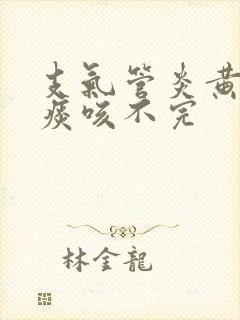 支氣管炎黃
痰咳不完
林金龍